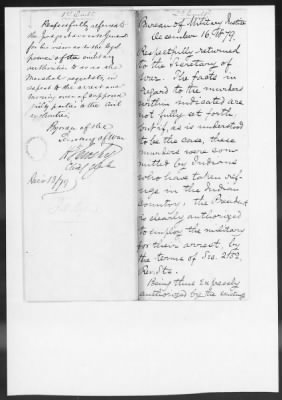 1st Indt.
Respectfully referred to
the Judge Advocate General
for his views as to the legal
power of the military
authorities to do as the
Marshal requests, in
respect to the arrest and
turning over of supposed
guilty parties to the civil
authorities
By order of the
Secretary of War
Chief Clerk
Dec 13/79
2d Indt.
Bureau of Military Justice
December 16th 79.
Respectfully returned
to the Secretary of
War. The facts in
regard to the murders
within indicated are
not fully set forth.
But if, as is understood
to be the case, these
murders were com-
mitted by Indians
who have taken ref-
uge in the Indian
Country, the President
is clearly authorized
to employ the military
for their arrest, by
the terms of Sec. 2152,
Rev. Sts.
Being thus expressly
authorized by the